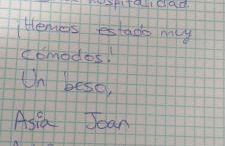 hospitalidad
¡Hemos estado muy
cómodos!
Un beso,
Asia Joan